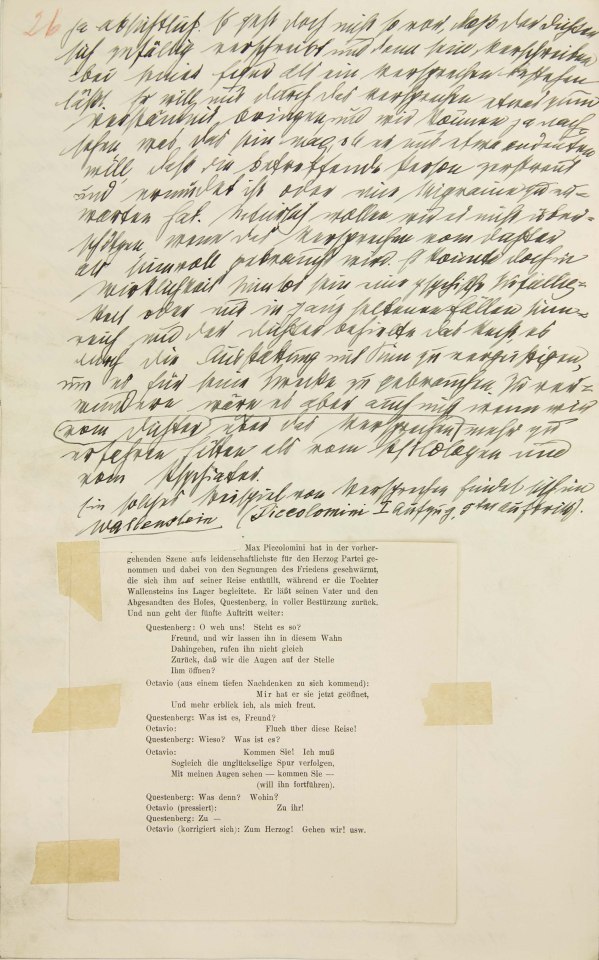 26
ja absichtlich. Es geht doch nicht so vor, daß der Dichter
sich zufällig verschreibt und dann sein Verschreiben
bei seiner Figur als ein Versprechen bestehen
läßt. Er will uns durch das Versprechen etwas zum
Verständnis bringen und wir können ja nach
sehen was das sein mag, ob er uns etwa andeuten
will daß die betreffende Person zerstreut
und ermüdet ist oder eine Migraine zu er-
warten hat. Natürlich wollen wir es nicht über-
schätzen, wenn das Versprechen vom Dichter
als sinnvoll gebraucht wird. Es könnte doch in
Wirklichkeit sinnlos sein eine psychische Zufällig-
keit oder nur in ganz seltenen Fällen sinn-
reich und der Dichter behielte das Recht, es
durch die Ausstattung mit Sinn zu vergeistigen,
um es für seine Zwecke zu gebrauchen. Zu ver-
wundern wäre es aber auch nicht wenn wir
vom Dichter über das Versprechen mehr zu
erfahren hätten als vom Philologen und
vom Psychiater.
Ein solches Beispiel von Versprechen findet sich im
Wallenstein (Piccolomini I Aufzug, 5ten Auftritt).
Max Piccolomini hat in der vorher-
gehenden Szene aufs leidenschaftlichste für den Herzog Partei ge-
nommen und dabei von den Segnungen des Friedens geschwärmt,
die sich ihm auf seiner Reise enthüllt, während er die Tochter
Wallensteins ins Lager begleitete. Er läßt seinen Vater und den
Abgesandten des Hofes, Questenberg, in voller Bestürzung zurück.
Und nun geht der fünfte Auftritt weiter:
Questenberg: O weh uns! Steht es so?
Freund, und wir lassen ihn in diesem Wahn
Dahingehen, rufen ihn nicht gleich
Zurück, daß wir die Augen auf der Stelle
Ihm öffnen?
Octavio (aus einem tiefen Nachdenken zu sich kommend):
Mir hat er sie jetzt geöffnet,
Und mehr erblick ich, als mich freut.
Questenberg: Was ist es, Freund?
Octavio: Fluch über diese Reise!
Questenberg: Wieso? Was ist es?
Octavio: Kommen Sie! Ich muß
Sogleich die unglückselige Spur verfolgen,
Mit meinen Augen sehen — kommen Sie —
(will ihn fortführen).
Questenberg: Was denn? Wohin?
Octavio (pressiert): Zu ihr!
Questenberg: Zu —
Octavio (korrigiert sich): Zum Herzog! Gehen wir! usw.